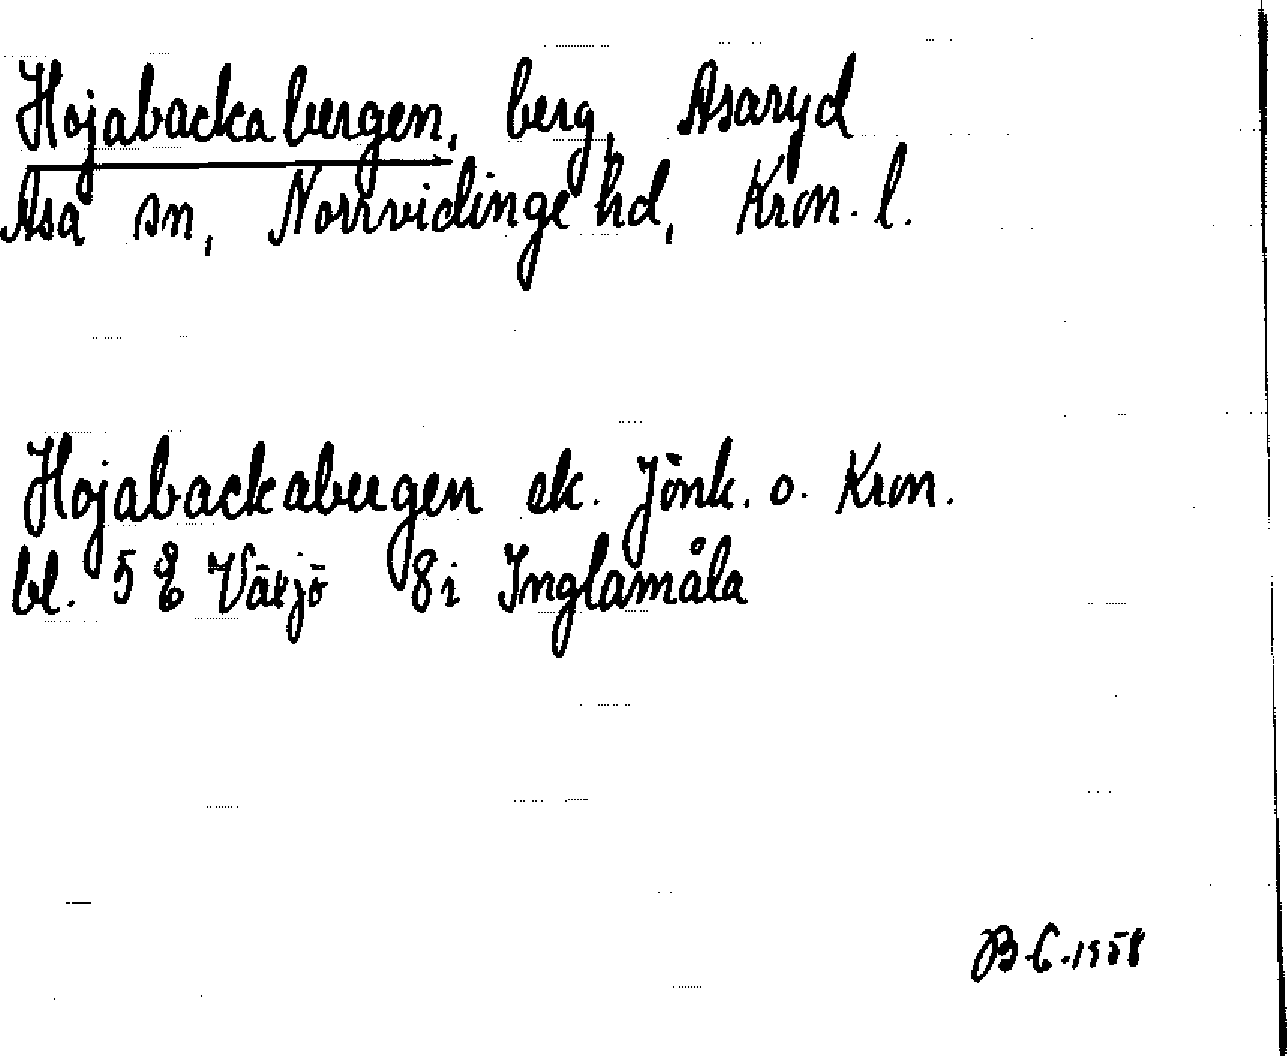 Hojabackabergen, berg, Asaryd
Asa sn, Norrvidinge hd, Kron. l.
Hojabackabergen ek. Jönk. o. Kron.
bl. 5 E Växjö 8i Inglamåla
B.C. 1958